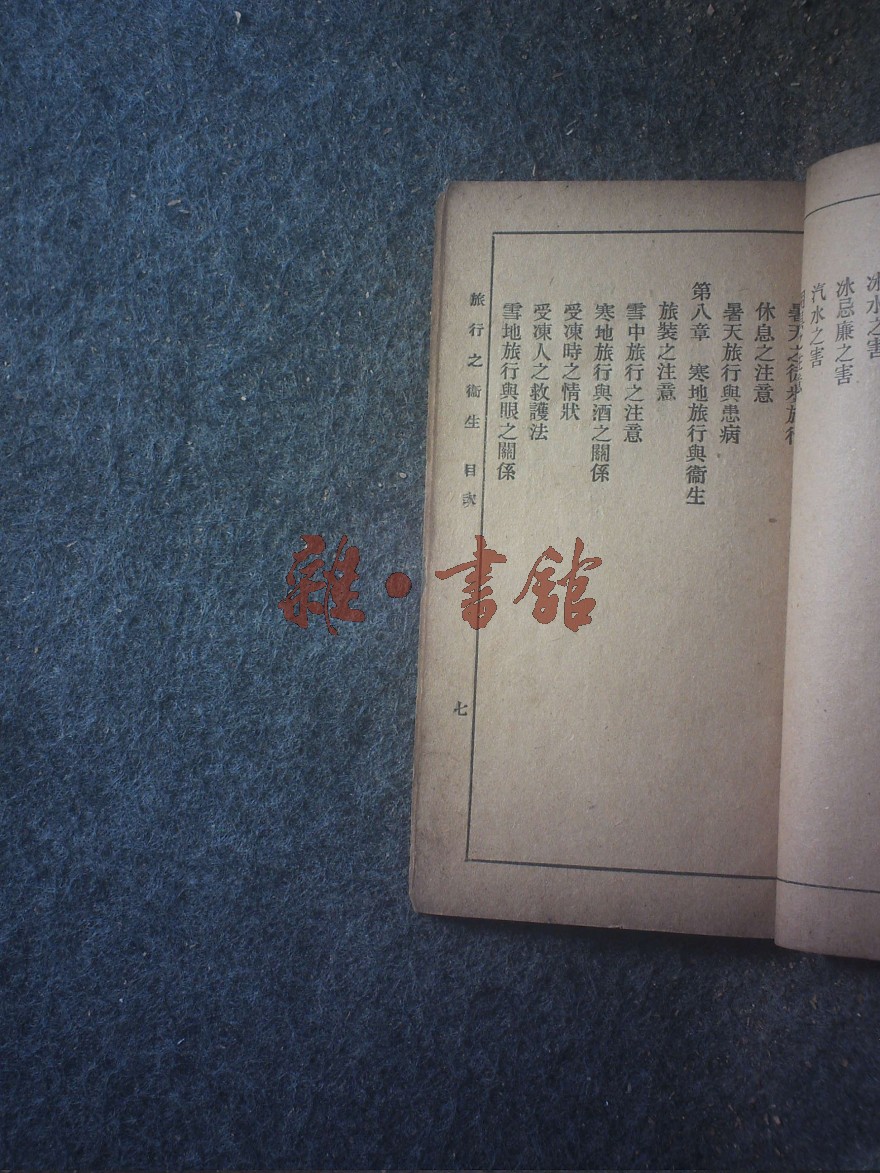 冰水之害
冰忌廉之害
汽水之害
暑天之徒步旅行
休息之注意
暑天旅行與患病
第八章　寒地旅行與衞生
旅裝之注意
雪中旅行之注意
寒地旅行與酒之關係
受凍時之情狀
受凍人之救護法
雪地旅行與眼之關係
旅行之衞生　目次
七
雜·書舘